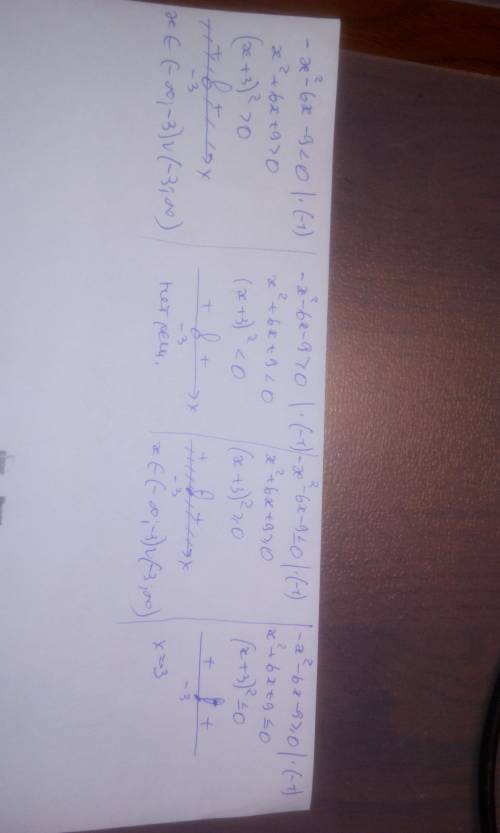 -x²-6x-9<0 |·(-1)
x²+6x+9>0
(x+3)²>0
+ + x
-3
x∈(-∞;-3)∪(-3;∞)
-x²-6x-9>0 |·(-1)
x²+6x+9<0
(x+3)²<0
+ + x
-3
нет реш.
-x²-6x-9≤0 |·(-1)
x²+6x+9≥0
(x+3)²≥0
+ + x
-3
x∈(-∞;-3)∪(-3;∞)
-x²-6x-9≥0 |·(-1)
x²+6x+9≤0
(x+3)²≤0
+ +
-3
x=-3